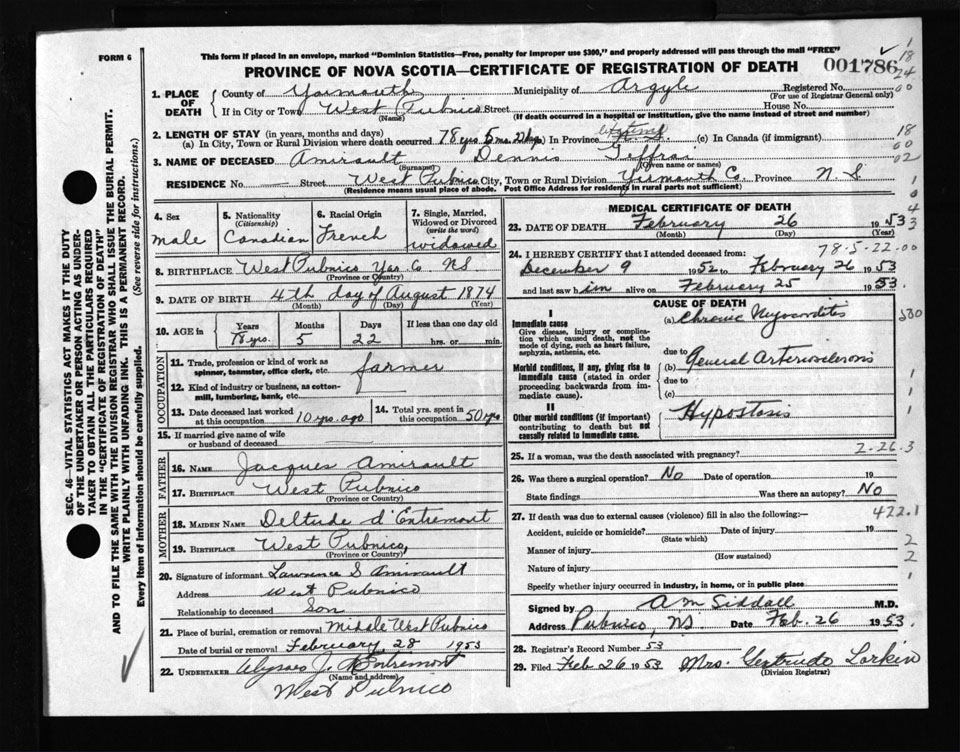 FORM 6
This form if placed in an envelope, marked "Dominion Statistics—Free, penalty for improper use $300," and properly addressed will pass through the mail "FREE"
PROVINCE OF NOVA SCOTIA—CERTIFICATE OF REGISTRATION OF DEATH 001786
SEC. 46—VITAL STATISTICS ACT MAKES IT THE DUTY
OF THE UNDERTAKER OR PERSON ACTING AS UNDER-
TAKER TO OBTAIN ALL THE PARTICULARS REQUIRED
IN THE "CERTIFICATE OF REGISTRATION OF DEATH"
AND TO FILE THE SAME WITH THE DIVISION REGISTRAR WHO SHALL ISSUE THE BURIAL PERMIT.
WRITE PLAINLY WITH UNFADING INK. THIS IS A PERMANENT RECORD.
Every item of Information should be carefully supplied. (See reverse side for instructions.)
1. PLACE OF DEATH
County of Yarmouth Municipality of Argyle Registered No.
(For use of Registrar General only)
If in City or Town West Pubnico Street House No.
(Name) (If death occurred in a hospital or institution, give the name instead of street and number)
2. LENGTH OF STAY (in years, months and days)
(a) In City, Town or Rural Division where death occurred 78 yrs 5 mo. 22 dys (b) In Province lifetime (c) In Canada (if immigrant)
3. NAME OF DECEASED Amirault Dennis Jeffrai
(Surname) (Given name or names)
RESIDENCE No. — Street West Pubnico City, Town or Rural Division Yarmouth Co. Province N.S
(Residence means usual place of abode. Post Office Address for residents in rural parts not sufficient)
4. Sex
male
5. Nationality
(Citizenship)
Canadian
6. Racial Origin
French
7. Single, Married,
Widowed or Divorced
(write the word)
widowed
8. BIRTHPLACE West Pubnico Yar. Co NS.
(Province or Country)
9. DATE OF BIRTH 4th day of August 1874
(Month) (Day) (Year)
10. AGE in Years Months Days If less than one day old
78 yrs. 5 22 hrs. or min.
OCCUPATION
11. Trade, profession or kind of work as
spinner, teamster, office clerk, etc. farmer
12. Kind of industry or business, as cotton-
mill, lumbering, bank, etc.
13. Date deceased last worked
at this occupation 10 yrs. ago
14. Total yrs. spent in
this occupation 50 yrs
15. If married give name of wife
or husband of deceased
FATHER
16. NAME Jacques Amirault
17. BIRTHPLACE West Pubnico
(Province or Country)
MOTHER
18. MAIDEN NAME Deltude d'Entremont
19. BIRTHPLACE West Pubnico,
(Province or Country)
20. Signature of informant Lawrence S Amirault
Address West Pubnico
Relationship to deceased Son
21. Place of burial, cremation or removal Middle West Pubnico
Date of burial or removal February 28 1953
22. UNDERTAKER Ulysses J. d'Entremont
(Name and address)
West Pubnico
MEDICAL CERTIFICATE OF DEATH
23. DATE OF DEATH February 26 1953
(Month) (Day) (Year)
24. I HEREBY CERTIFY that I attended deceased from: 78-5-22-00
December 9 1952 to February 26 1953
and last saw him alive on February 25 1953.
CAUSE OF DEATH
I
Immediate cause
Give disease, injury or complica-
tion which caused death, not the
mode of dying, such as heart failure,
asphyxia, asthenia, etc.
(a) Chronic Myocarditis
due to
Morbid conditions, if any, giving rise to
immediate cause (stated in order
proceeding backwards from im-
mediate cause).
(b) General Arteriosclerosis
due to
(c)
II
Other morbid conditions (if important)
contributing to death but not
causally related to immediate cause.
Hypostosis
25. If a woman, was the death associated with pregnancy? 2-26-3
26. Was there a surgical operation? No Date of operation 19
State findings Was there an autopsy? No
27. If death was due to external causes (violence) fill in also the following:— 422.1
Accident, suicide or homicide? Date of injury 19
(State which)
Manner of injury
(How sustained)
Nature of injury
Specify whether injury occurred in industry, in home, or in public place
Signed by A M Siddall M.D.
Address Pubnico, NS. Date Feb. 26 1953.
28. Registrar's Record Number 53
29. Filed Feb. 26 1953 Mrs. Gertrude Larkin
(Division Registrar)